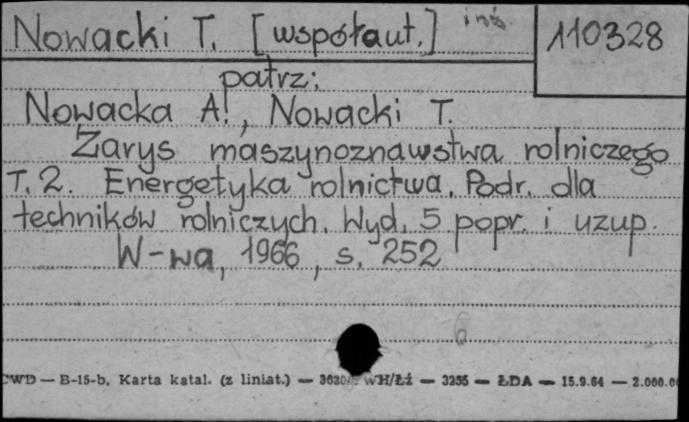 Nowacki T. [współaut.] inż
110328
patrz:
Nowacka A., Nowacki T.
Zarys maszynoznawstwa rolniczego
T. 2. Energetyka rolnictwa. Podr. dla
techników rolniczych. Wyd. 5 popr. i uzup.
W-wa, 1966, s. 252
6
CWD — B-15-b. Karta katal. (z liniat.) — WH/Łź — 3255 — ŁDA — 15.9.64 — 2.000.0